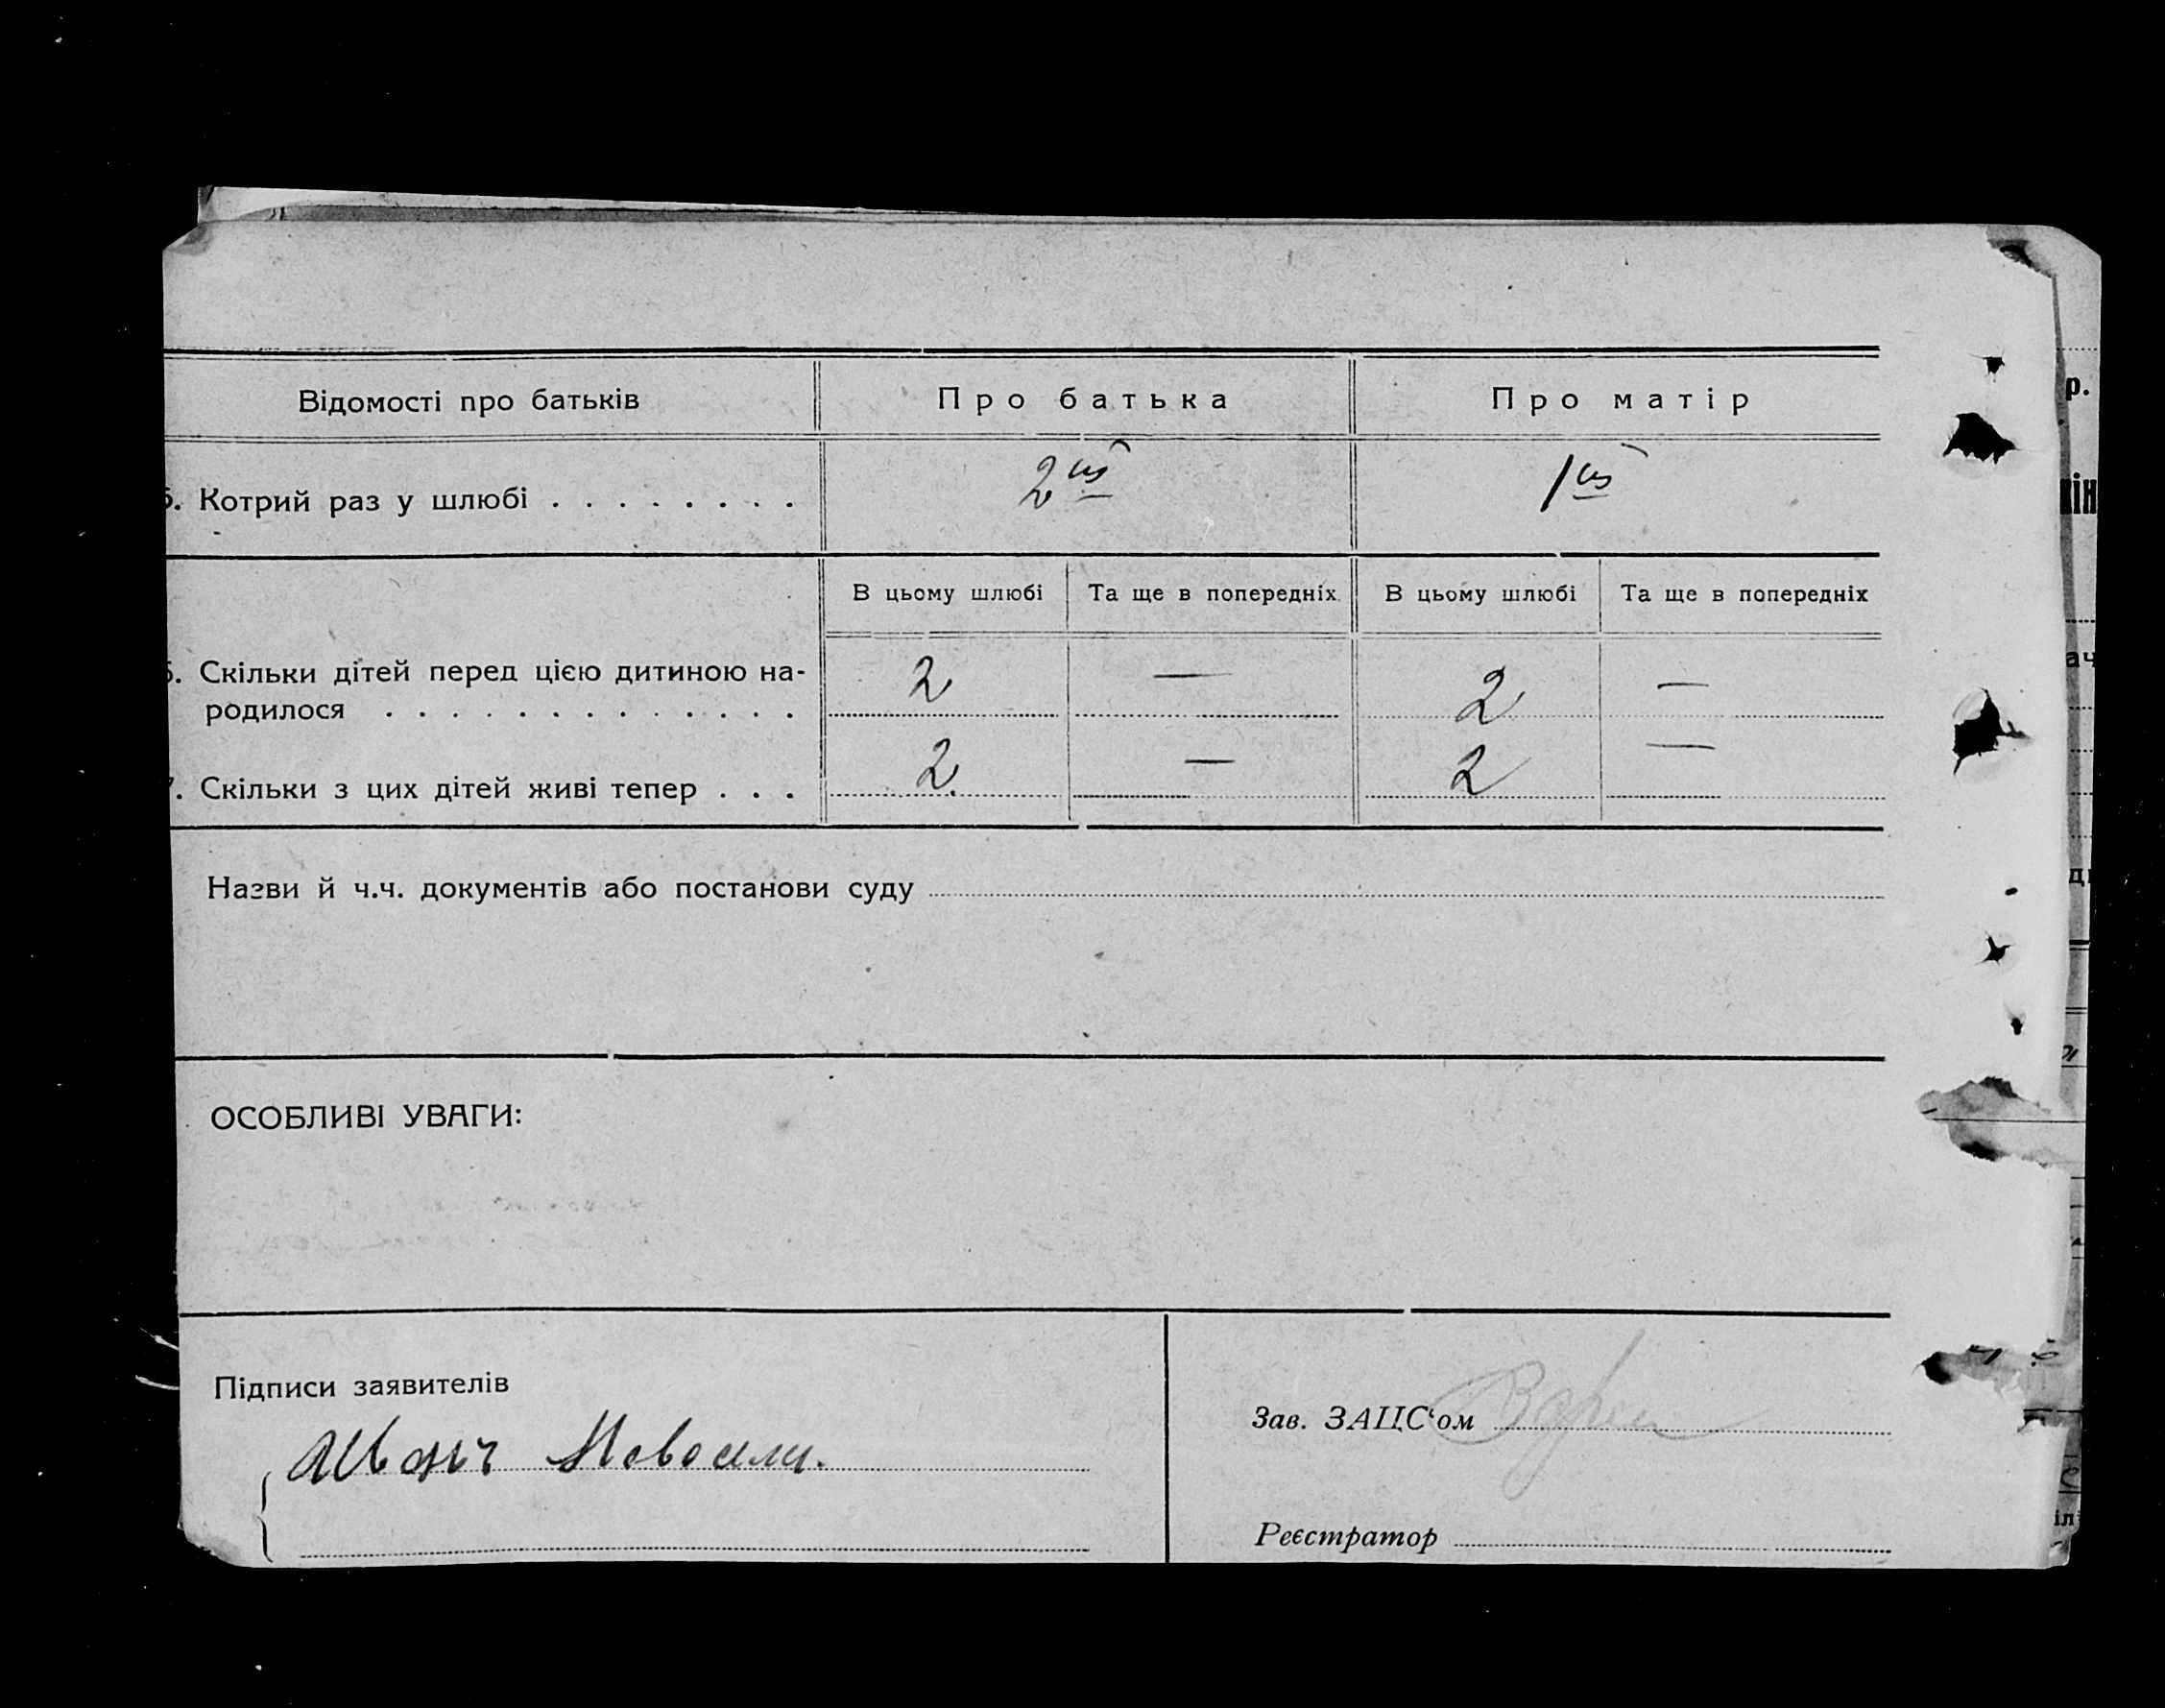 Відомості про батьків
Про батька
Про матір
Котрий раз у шлюбі . . . . . . . .
2ий
1ий
В цьому шлюбі
Та ще в попередніх
В цьому шлюбі
Та ще в попередніх
Скільки дітей перед цією дитиною на-
родилося . . . . . . . . . . . . . .
2 — 2 —
7. Скільки з цих дітей живі тепер . . .
2 — 2 —
Назви й ч.ч. документів або постанови суду
ОСОБЛИВІ УВАГИ:
Підписи заявителів
Зав. ЗАЦС‘ом
Реєстратор
р.